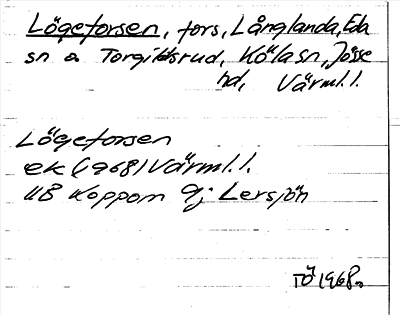 Lögeforsen, fors, Långlanda, Eda
sn o Torgilsrud, Köla sn, Jösse
hd, Värml. l.
Lögeforsen
ek (1968) Värml. l.
11B Koppom 9j Lersjön
TÖ 1968.